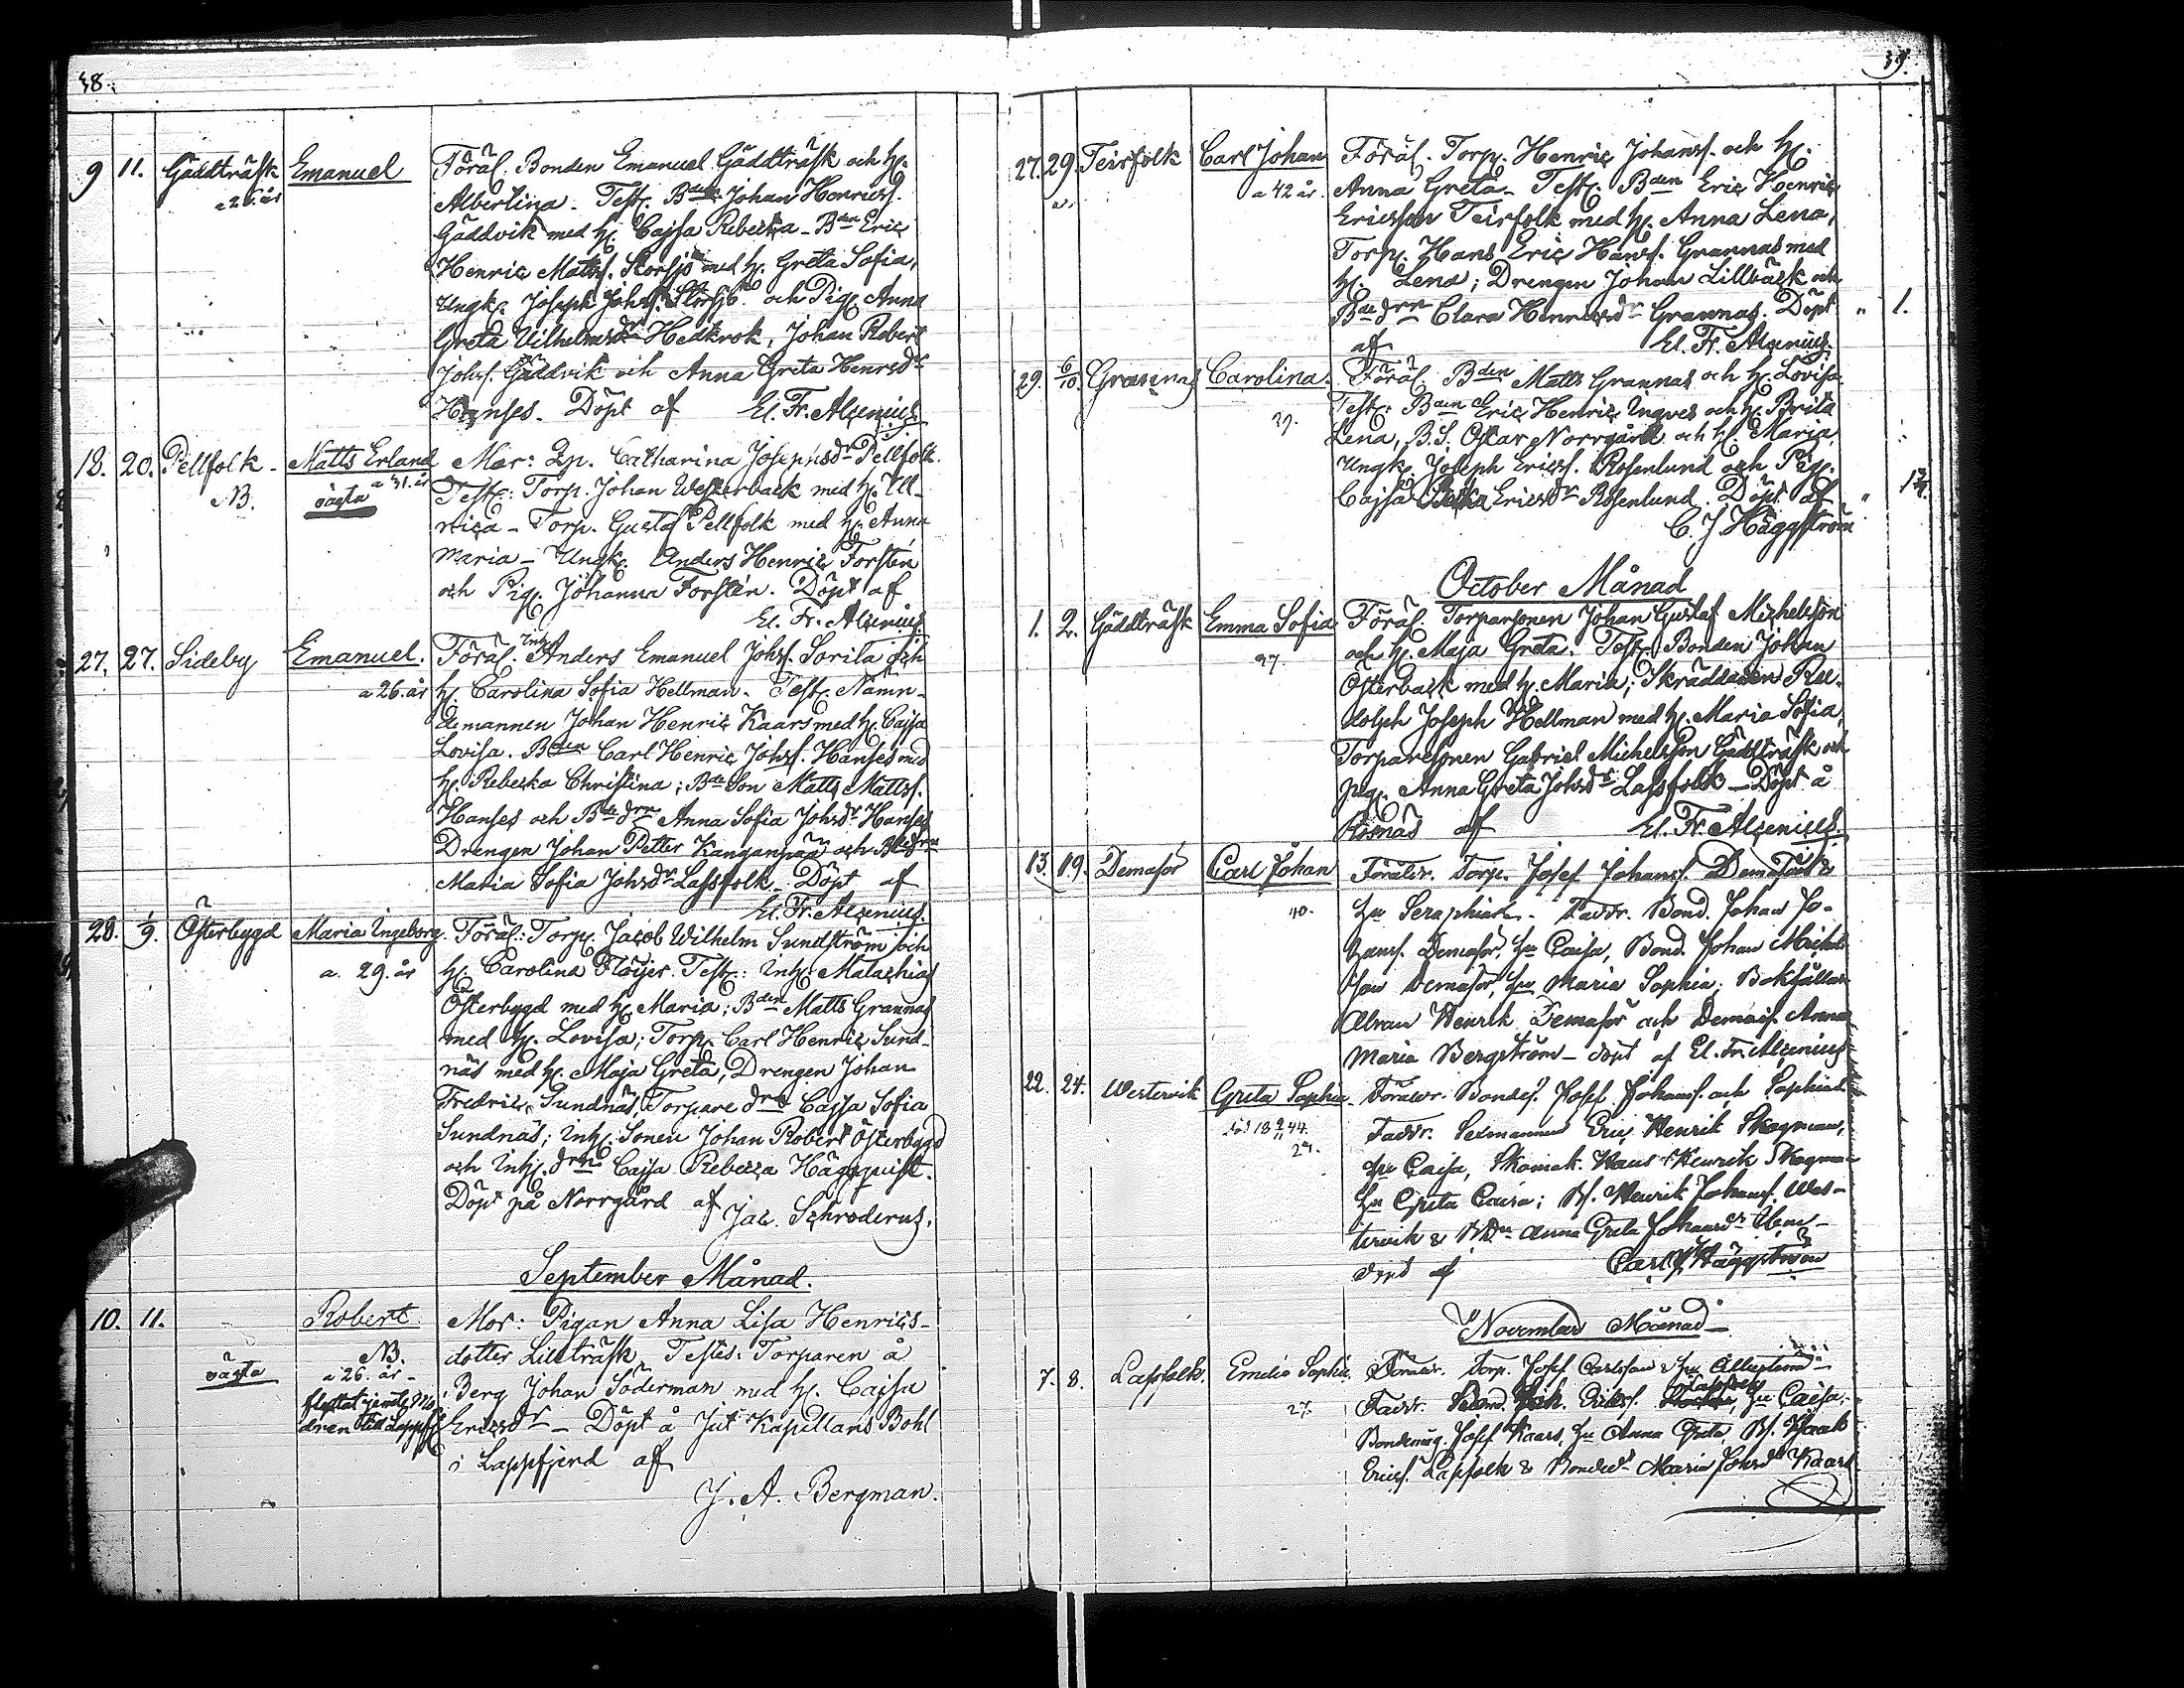 38.
9 11. Gäddträsk Emanuel Föräl. Bonden Emanuel Gäddträsk och H.
a 26. år Albertina. Test. Bden Johan Henricss.
Gäddvik med H. Cajsa Rebecka - Bden Eric
Henric Mattss. Storsjö med H. Greta Sofia,
Ungk. Joseph Johss. Storsjö och Pig. Anna
Greta Vilhelmsdr Hedkrok, Johan Robert
Johss. Gäddvik och Anna Greta Henrsdr
Hanses. Döpt af El. Fr. Alcenius
18. 20. Pellfolk - Matts Erland Mor: Qp. Catharina Josephsdr Pellfolk.
NB. oägta a 31. år Test: Torp. Johan Westerback med H. Ul-
rica - Torp. Gustaf Pellfolk med H. Anna
Maria - Ungk. Anders Henric Forstén
och Pig. Johanna Forstén. Döpt af
El. Fr. Alcenius
27. 27. Sideby Emanuel. Föräl. Inh. Anders Emanuel Johss. Sorita och
a 26. år H. Carolina Sofia Hellman. Test. Nämn-
demannen Johan Henric Kaars med H. Cajsa
Lovisa. Bden Carl Henric Johss. Hanses med
H. Rebecka Christina; Bde Son Matts Mattss.
Hanses och Bde drn Anna Sofia Johsdr Hanses
Drengen Johan Petter Kanganpää och Bde drn
Maria Sofia Johsdr Lassfolk. Döpt af
El. Fr. Alcenius.
28. 1/9. Österbygd Maria Ingeborg. Föräl: Torp. Jacob Wilhelm Sundström och
a. 29. år H. Carolina Flöijer. Test: Inh. Malachias
Österbygd med H. Maria; Bden Matts Grannas
med H. Lovisa; Torp. Carl Henric Sund-
näs med H. Maja Greta, Drengen Johan
Fredric Sundnäs, Torpare drn Cajsa Sofia
Sundnäs; Inh. Sonen Johan Robert Österbygd
och Inh. drn Cajsa Rebecca Häggquist.
Döpt på Norrgård af Jac. Schroderus.
September Månad.
10. 11. Robert Mor: Pigan Anna Lisa Henrics-
NB. dotter Lillträsk Testes: Torparen å
oägta a 26. år - Berg Johan Söderman med H. Cajsa
flyttat jemte Mo
dren till Lappfj. Ericsdr - Döpt å Jut Kapellans Bohl
i Lappfjerd af
J. A. Bergman.
39.
27. 29. Teirfolk Carl Johan Föräl. Torp. Henric Johanss. och H.
a 42 år. Anna Greta - Test. Bden Eric Henric
Ericsson Teirfolk med H. Anna Lena,
Torp. Hans Eric Hanss. Grannas med
H. Lena; Drengen Johan Lillbäck och
Bde drn Clara Henricsdr Grannas. Döpt " 1.
af El. Fr. Alcenius.
29. 6/10. Grannas Carolina. Föräl. Bden Matts Grannas och H. Lovisa.
39. Test: Bden Eric Henric Ingves och H. Brita
Lena, B.S. Oscar Norrgård och H. Maria,
Ungk. Joseph Ericss. Rosenlund och Pig.
Cajsa Ericsdr Rosenlund. Döpt af "
C. J. Häggström
October Månad
1. 2. Gäddträsk Emma Sofia Föräl. Torparsonen Johan Gustaf Michelsson
27. och H. Maja Greta. Test. Bonden Johan
Österback med H. Maria; Skräddaren Ru-
dolph Joseph Hellman med H. Maria Sofia,
Torparesonen Gabriel Michelsson Gäddträsk och
Pig. Anna Greta Johsdr Lassfolk - Döpt å
Risnäs af El. Fr. Alcenius.
13. 19. Demasör Carl Johan Föräldr. Torp. Josef Johanss. Demasör &
40. Hu Seraphia. Faddr. Bond. Johan Jo-
hanss. Demasör, Hu Caisa, Bond. Johan Mickels
son Demasör, Hu Maria Sophia; Bokhållar
Abram Henrik Demasör och Demois. Anna
Maria Bergström - döpt af El. Fr. Alcenius
22. 24. Westervik Greta Sophia Föräldr. Bondes. Josef Johanss. och Sophia
24. Faddr. Sexmannen Eric Henrik Skogman,
Hu Caisa, Skomak. Hans Henrik Skogman
Hu Greta Caisa; Bs. Henrik Johanss. Wes-
tervik & Bdr Anna Greta Johansdr
döpt af Carl J Häggström
November Månad
7. 8. Lassfolk. Emilia Sophia. Föräldr. Torp. Josef Carlsson & Hu Albertina
27. Faddr. Bond. Erik Erikss. Lassfolk, Hu Caisa,
Bondemåg. Josef Kaars, Hu Anna Greta, Bs. Isaak
Ericss. Lassfolk & Bondedr Maria Johsdr Kaars